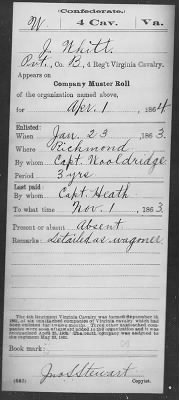 Confederate.
W 4 Cav. Va.
J. Whitt
Pvt., Co. B, 4 Reg't Virginia Cavalry.
Appears on
Company Muster Roll
of the organization named above,
for Apr. 1, 1864.
Enlisted:
When Jan. 23, 1863.
Where Richmond
By whom Capt. Wooldridge
Period 3 yrs
Last paid:
By whom Capt. Heath
To what time Nov. 1, 1863.
Present or absent Absent
Remarks: detailed as wagoner
Book mark:
(642) Jno. S. Stewart
Copyist.